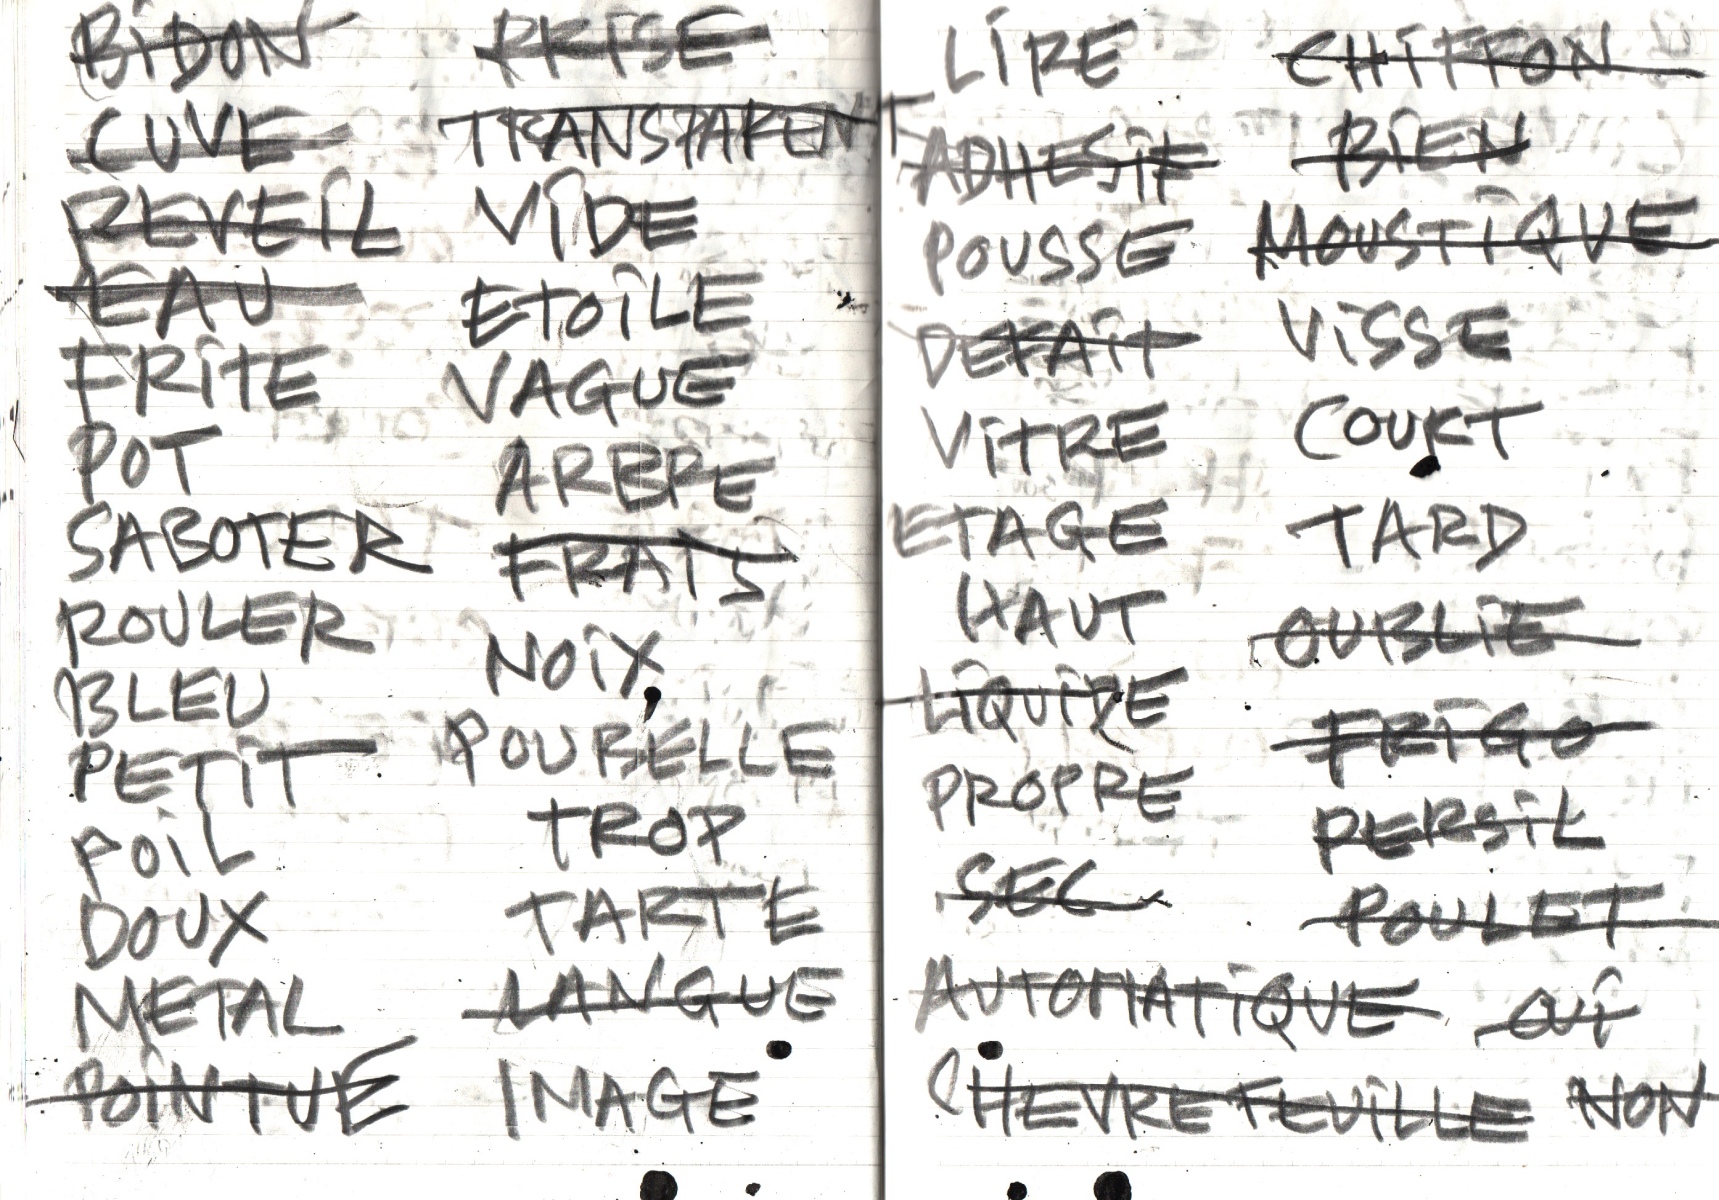 BIDON
CUVE
REVEIL
EAU
FRITE
POT
SABOTER
ROULER
BLEU
PETIT
POIL
DOUX
METAL
POINTUE
PRISE
TRANSPARENT
VIDE
ETOILE
VAGUE
ARBRE
FRAIS
NOIX
POUBELLE
TROP
TARTE
LANGUE
IMAGE
LIRE
ADHESIF
POUSSE
DEFAIT
VITRE
ETAGE
HAUT
LIQUIDE
PROPRE
SEC
AUTOMATIQUE
CHEVREFEUILLE
CHIFFON
BIEN
MOUSTIQUE
VISSE
COURT
TARD
OUBLIE
FRIGO
PERSIL
POULET
OUI
NON